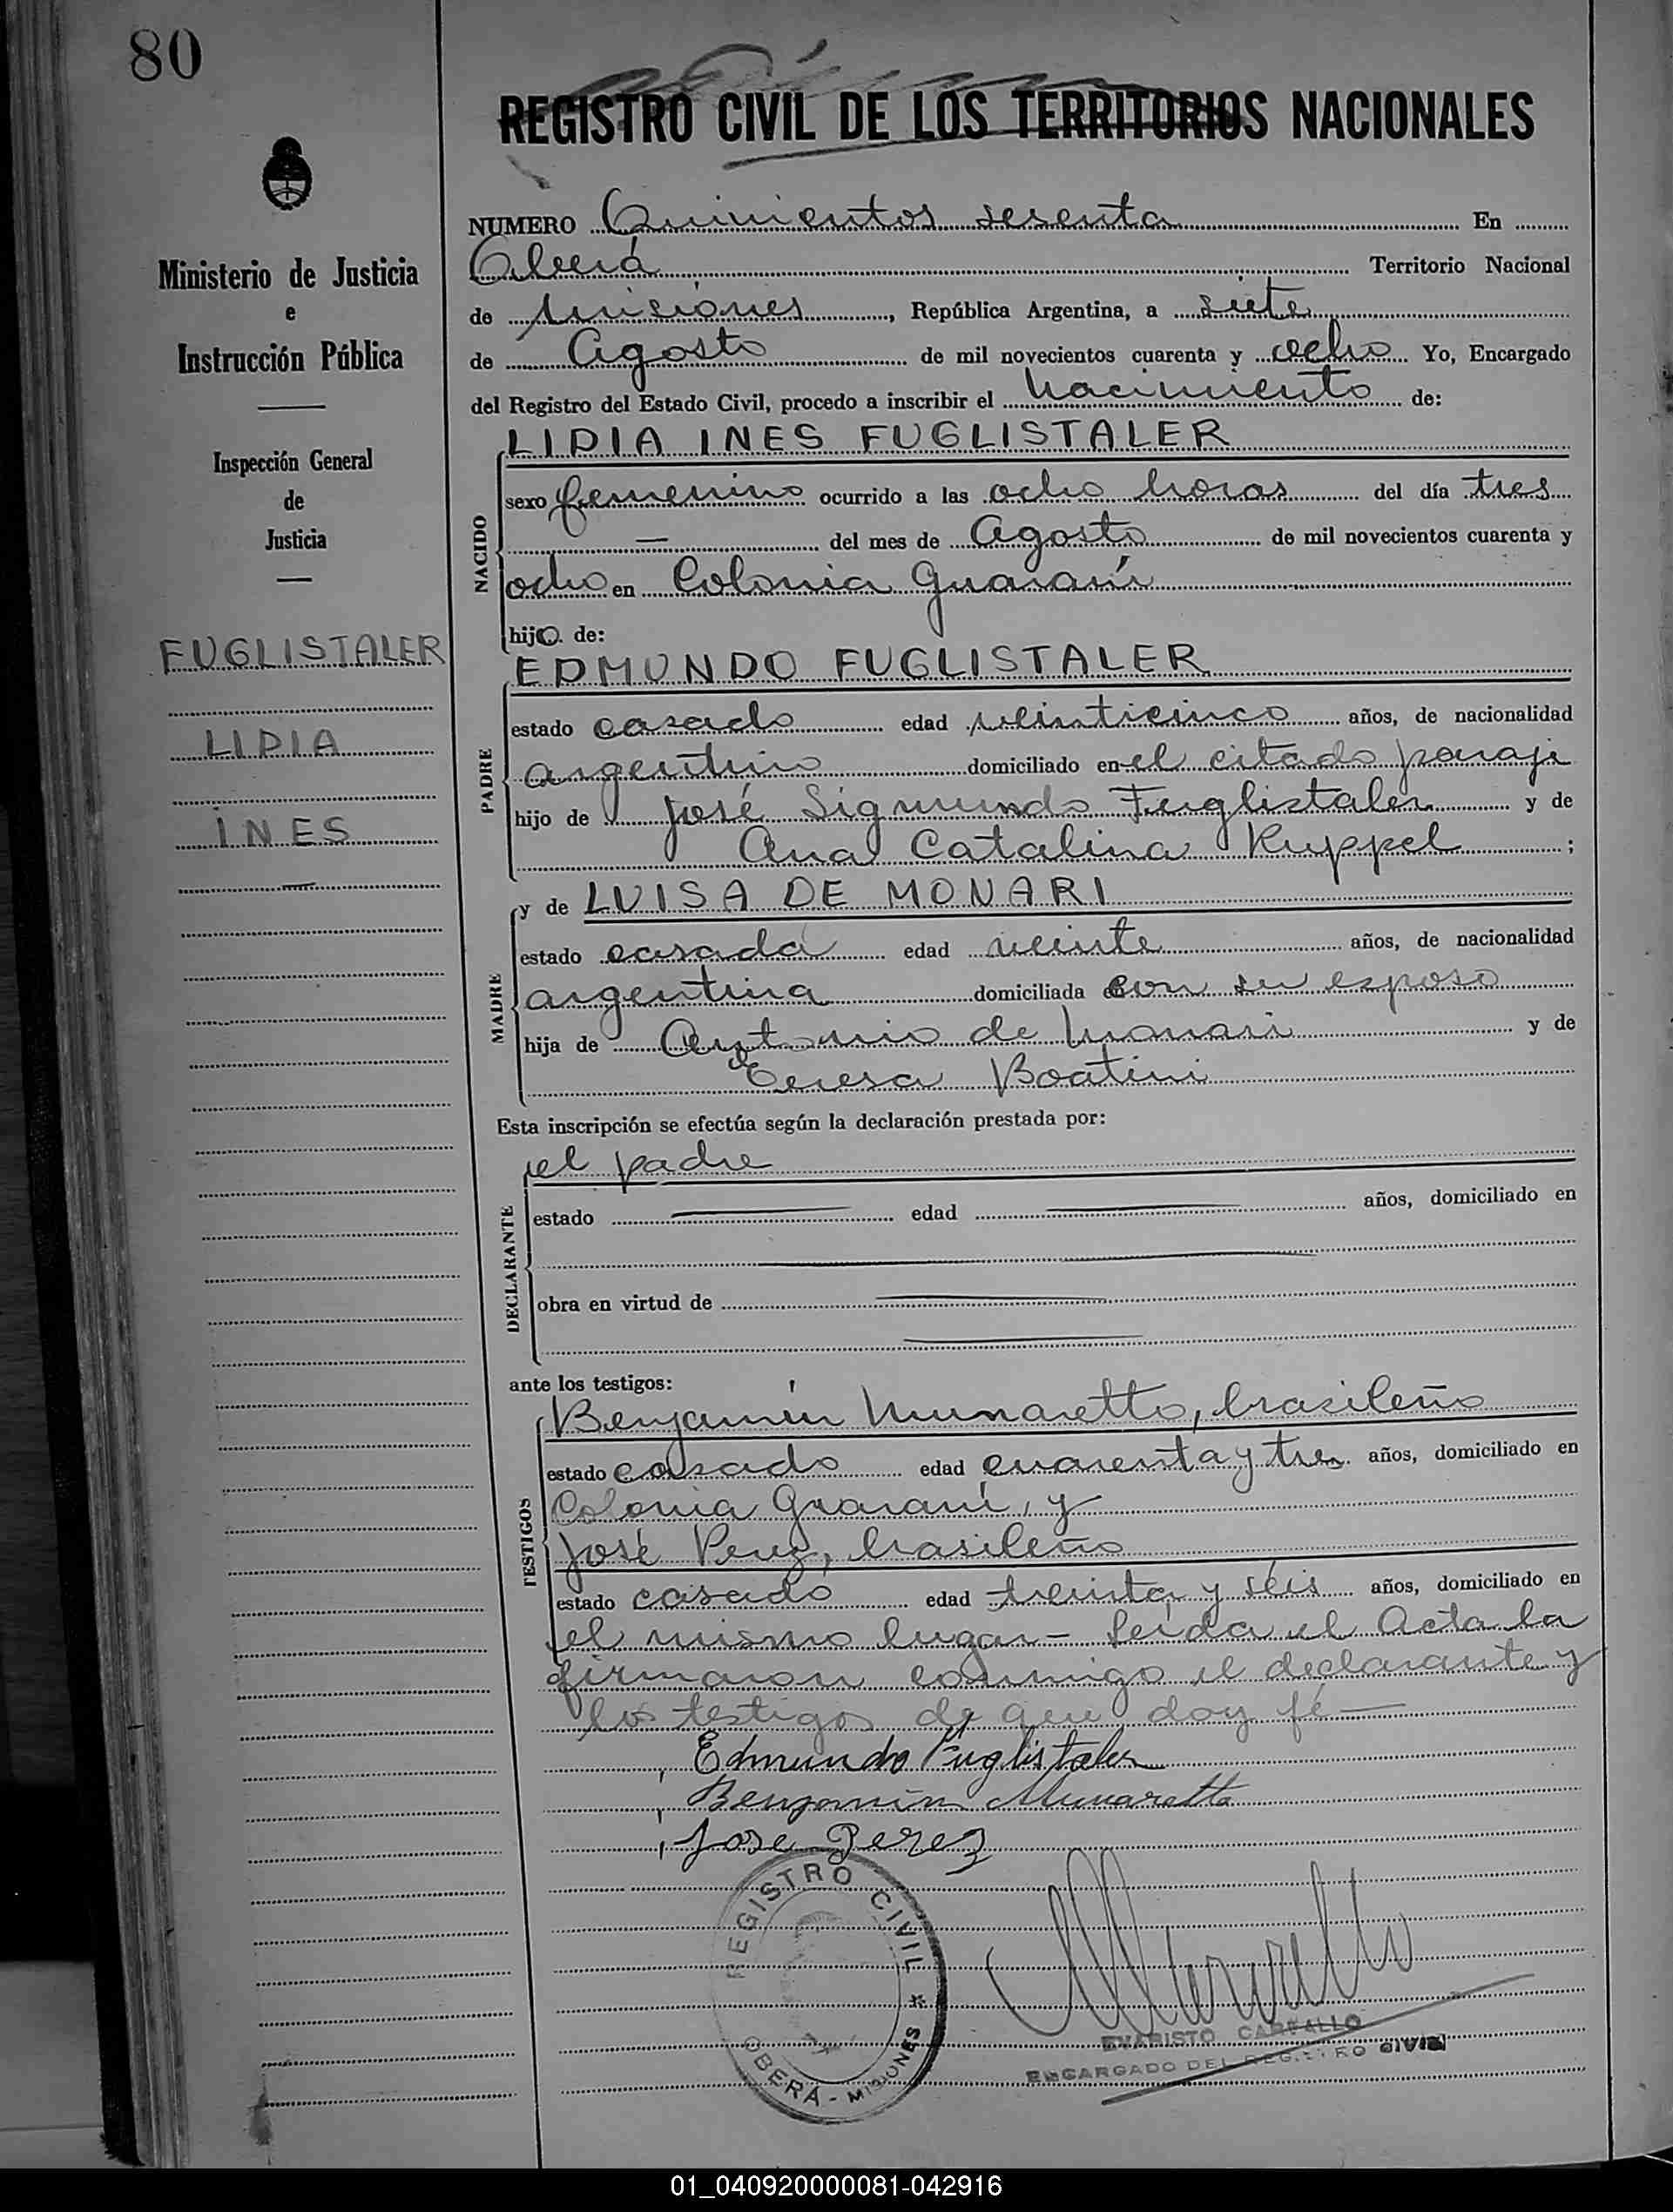 80
REGISTRO CIVIL DE LOS TERRITORIOS NACIONALES
Ministerio de Justicia
e
Instrucción Pública
Inspección General
de
Justicia
FUGLISTALER
LIDIA
INES
NUMERO Quinientos sesenta En
Oberá Territorio Nacional
de Misiones, República Argentina, a siete
de Agosto de mil novecientos cuarenta y ocho Yo, Encargado
del Registro del Estado Civil, procedo a inscribir el Nacimiento de:
NACIDO
LIDIA INES FUGLISTALER
sexo femenino ocurrido a las ocho horas del día tres
— del mes de Agosto de mil novecientos cuarenta y
ocho en Colonia Guaraní
hijo de:
PADRE
EDMUNDO FUGLISTALER
estado casado edad veinticinco años, de nacionalidad
argentino domiciliado en el citado paraje
hijo de José Sigmundo Fuglistaler y de
Ana Catalina Kuppel ;
MADRE
y de LUISA DE MONARI
estado casada edad veinte años, de nacionalidad
argentina domiciliada con su esposo
hija de Antonio de Monari y de
de Teresa Boatini
Esta inscripción se efectúa según la declaración prestada por:
DECLARANTE
el padre
estado — edad — años, domiciliado en
obra en virtud de —
ante los testigos:
TESTIGOS
Benjamín Munaretto, brasileño
estado casado edad cuarenta y tres años, domiciliado en
Colonia Guaraní, y
José Perez, brasileño
estado casado edad treinta y séis años, domiciliado en
el mismo lugar - Leída el Acta la
firmaron conmigo el declarante y
los testigos de que doy fé —
Edmundo Fuglistaler
Benjamin Munaretto
Jose Perez
REGISTRO CIVIL *
OBERÁ - MISIONES
EVARISTO CARFALLO
ENCARGADO DEL REGISTRO CIVIL
01_040920000081-042916